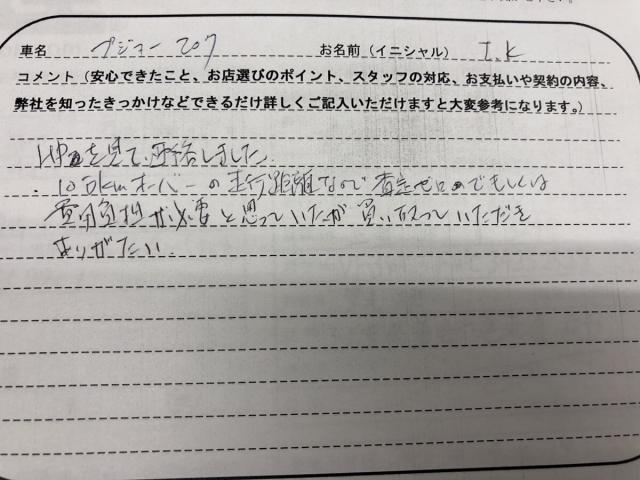 車名 プジョー207 お名前（イニシャル） I.K
コメント（安心できたこと、お店選びのポイント、スタッフの対応、お支払いや契約の内容、
弊社を知ったきっかけなどできるだけ詳しくご記入いただけますと大変参考になります。）
HPを見て、連絡しました。
10万kmオーバーの走行距離なので査定ゼロ円でもしくは
費用負担が必要と思っていたが買い取っていただき
ありがたい。